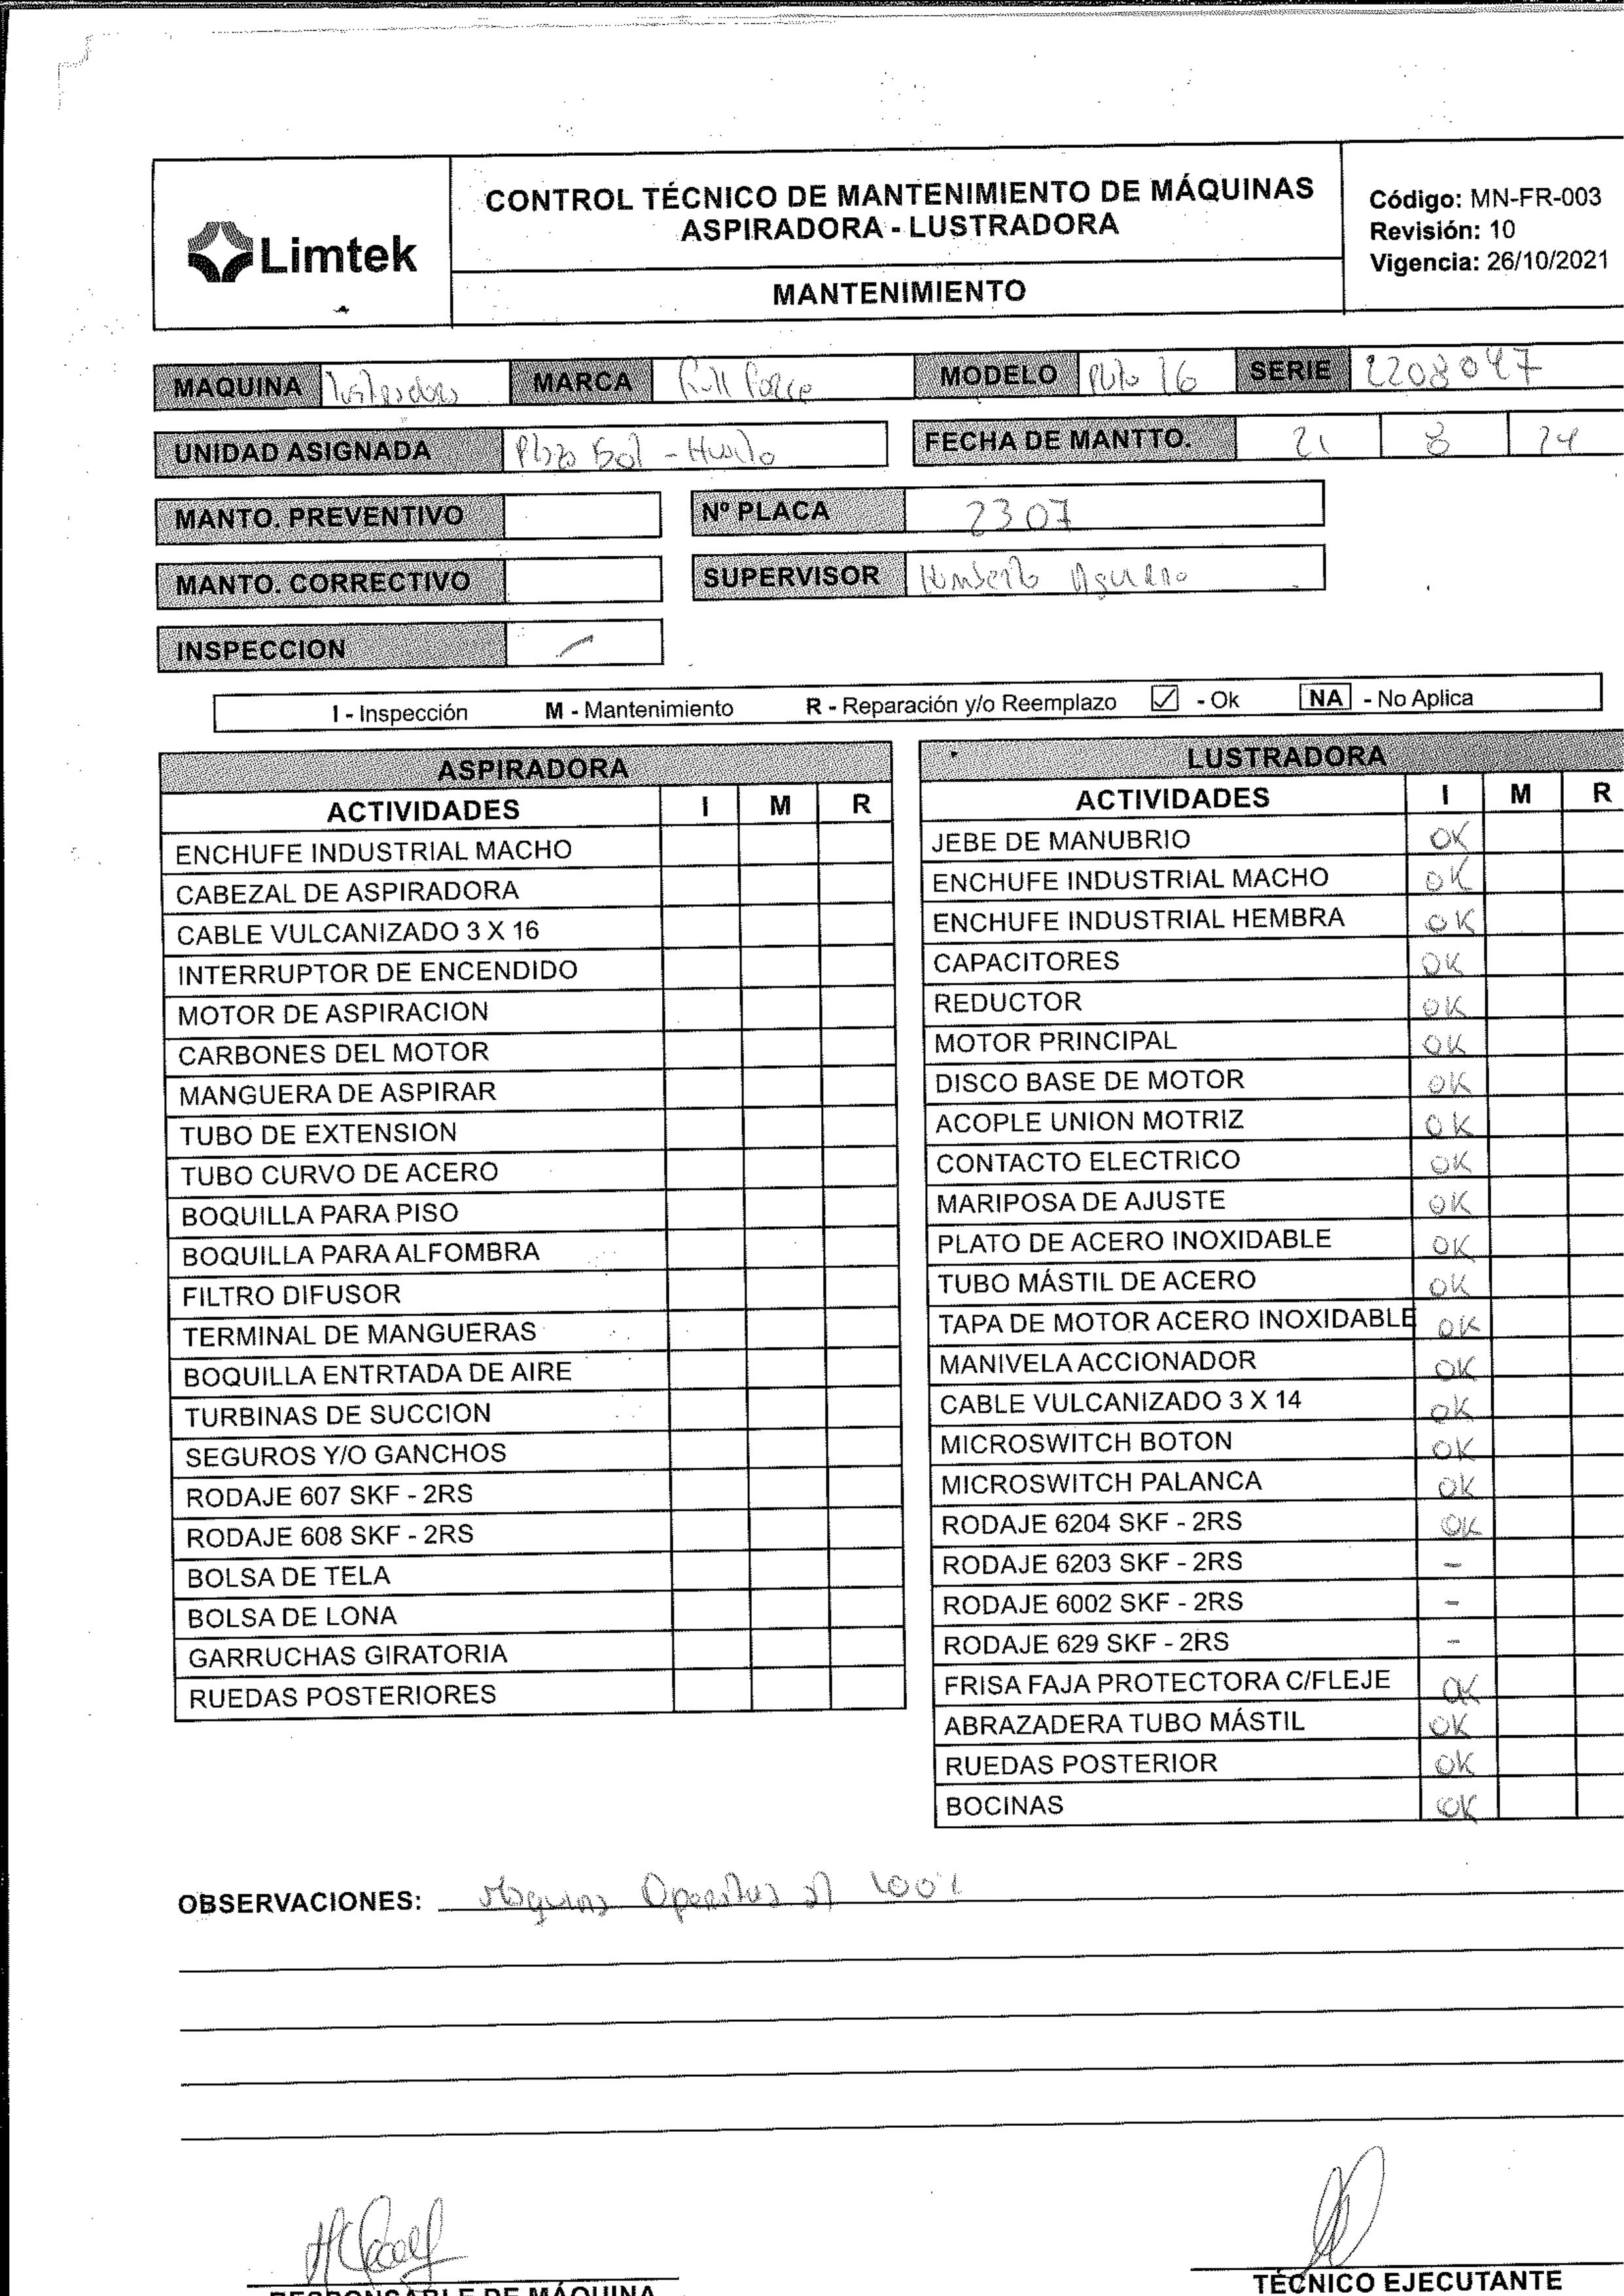 Limtek
CONTROL TÉCNICO DE MANTENIMIENTO DE MÁQUINAS
ASPIRADORA - LUSTRADORA
MANTENIMIENTO
Código: MN-FR-003
Revisión: 10
Vigencia: 26/10/2021
MAQUINA Lustradora MARCA Full Force MODELO Plato 16 SERIE 2208047
UNIDAD ASIGNADA Plaza Sol - Huacho FECHA DE MANTTO. 21 8 24
MANTO. PREVENTIVO Nº PLACA 2307
MANTO. CORRECTIVO SUPERVISOR Humberto
INSPECCION
I - Inspección M - Mantenimiento R - Reparación y/o Reemplazo ☑ - Ok NA - No Aplica
ASPIRADORA
ACTIVIDADES I M R
ENCHUFE INDUSTRIAL MACHO
CABEZAL DE ASPIRADORA
CABLE VULCANIZADO 3 X 16
INTERRUPTOR DE ENCENDIDO
MOTOR DE ASPIRACION
CARBONES DEL MOTOR
MANGUERA DE ASPIRAR
TUBO DE EXTENSION
TUBO CURVO DE ACERO
BOQUILLA PARA PISO
BOQUILLA PARA ALFOMBRA
FILTRO DIFUSOR
TERMINAL DE MANGUERAS
BOQUILLA ENTRTADA DE AIRE
TURBINAS DE SUCCION
SEGUROS Y/O GANCHOS
RODAJE 607 SKF - 2RS
RODAJE 608 SKF - 2RS
BOLSA DE TELA
BOLSA DE LONA
GARRUCHAS GIRATORIA
RUEDAS POSTERIORES
LUSTRADORA
ACTIVIDADES I M R
JEBE DE MANUBRIO OK
ENCHUFE INDUSTRIAL MACHO OK
ENCHUFE INDUSTRIAL HEMBRA OK
CAPACITORES OK
REDUCTOR OK
MOTOR PRINCIPAL OK
DISCO BASE DE MOTOR OK
ACOPLE UNION MOTRIZ OK
CONTACTO ELECTRICO OK
MARIPOSA DE AJUSTE OK
PLATO DE ACERO INOXIDABLE OK
TUBO MÁSTIL DE ACERO OK
TAPA DE MOTOR ACERO INOXIDABLE OK
MANIVELA ACCIONADOR OK
CABLE VULCANIZADO 3 X 14 OK
MICROSWITCH BOTON OK
MICROSWITCH PALANCA OK
RODAJE 6204 SKF - 2RS OK
RODAJE 6203 SKF - 2RS -
RODAJE 6002 SKF - 2RS -
RODAJE 629 SKF - 2RS -
FRISA FAJA PROTECTORA C/FLEJE OK
ABRAZADERA TUBO MÁSTIL OK
RUEDAS POSTERIOR OK
BOCINAS OK
OBSERVACIONES: Maquina Operativa al 100%
RESPONSABLE DE MÁQUINA
TÉCNICO EJECUTANTE